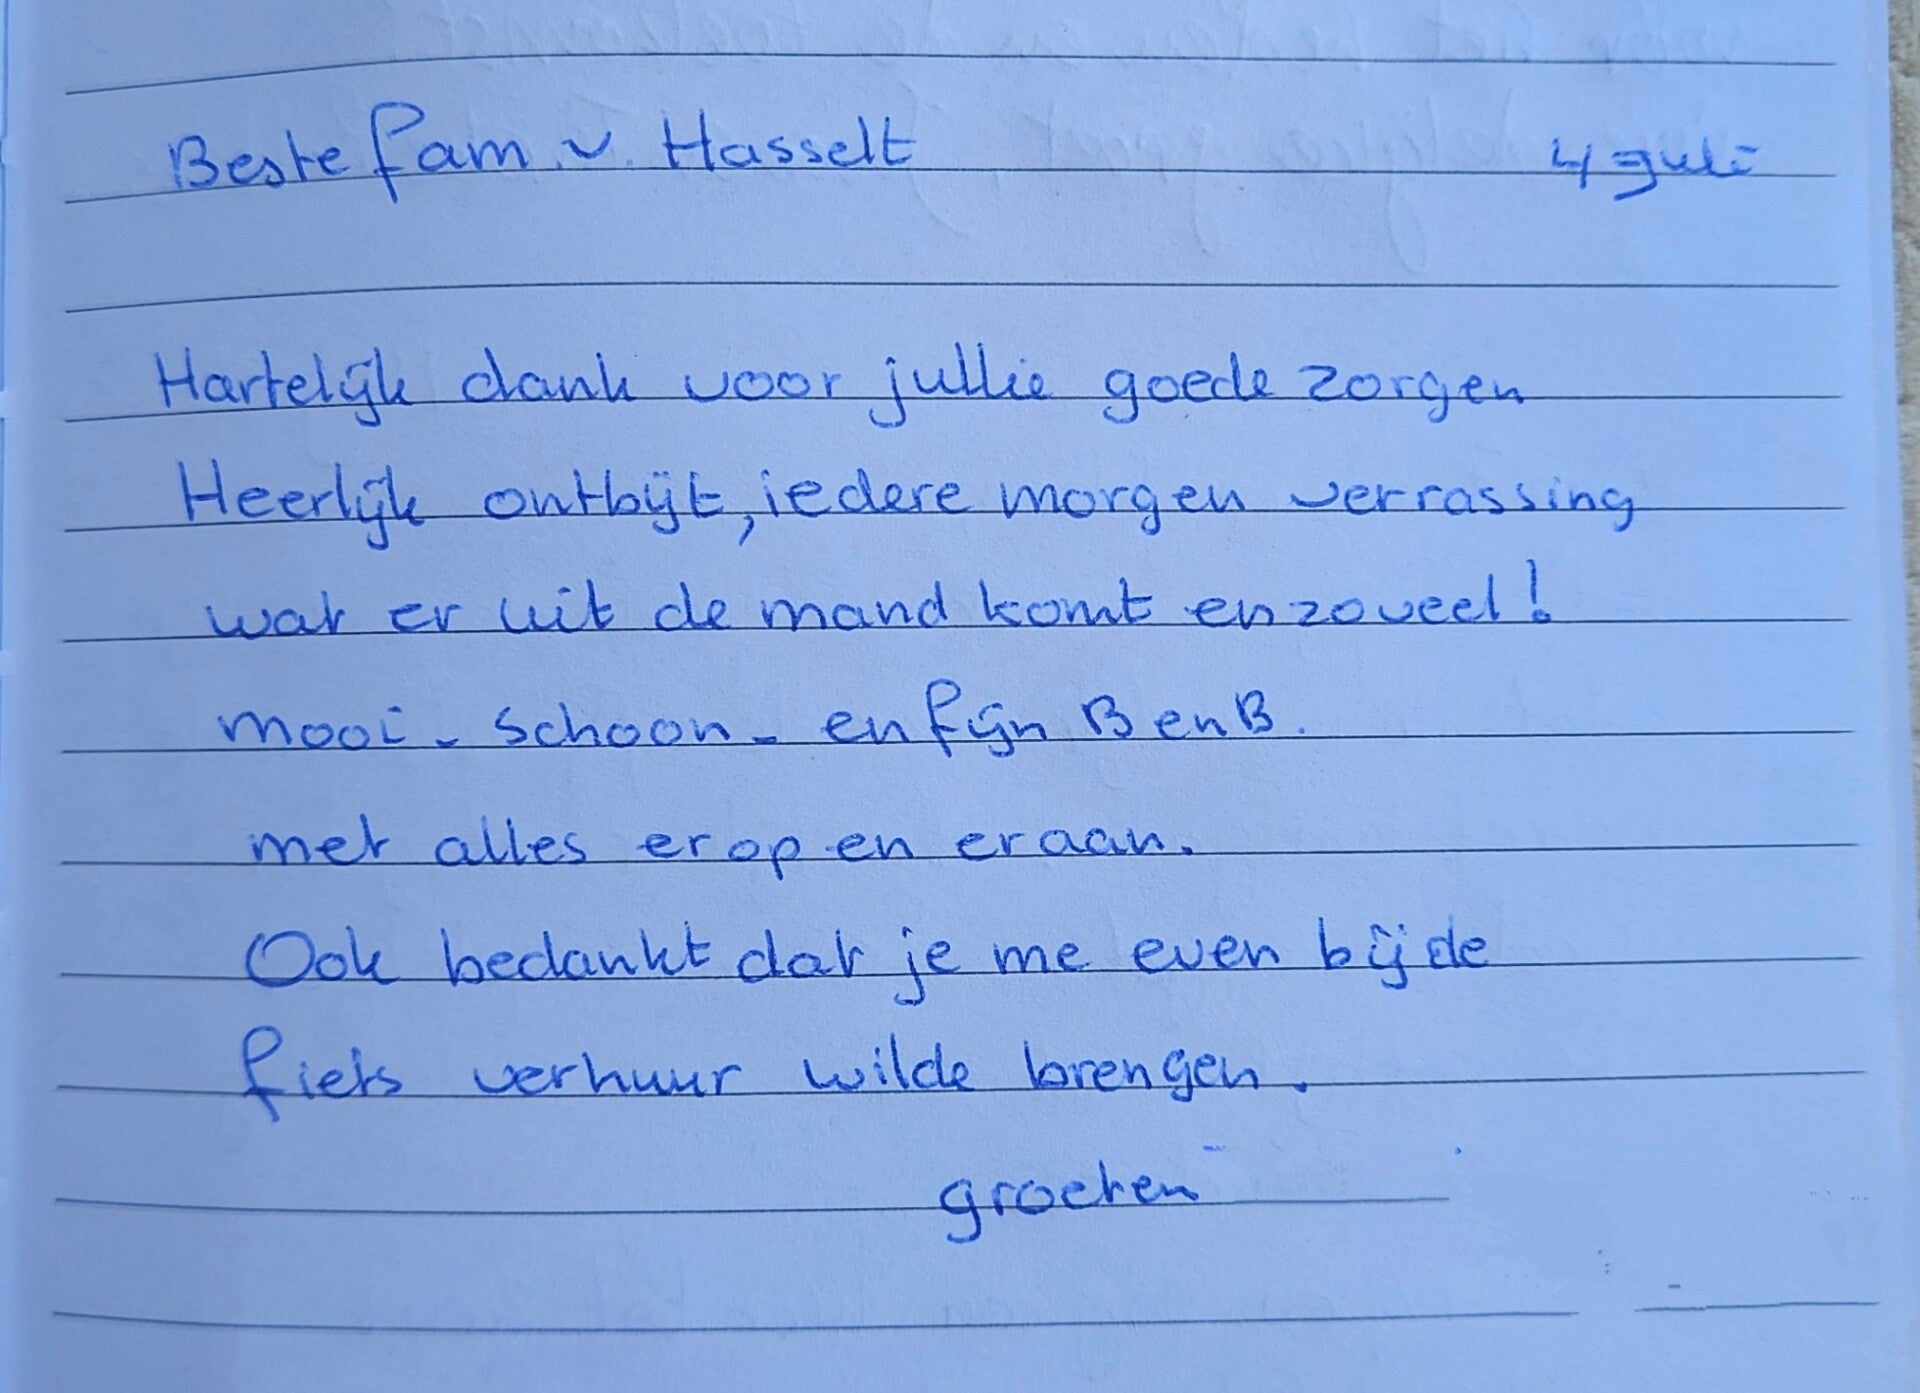 Beste fam v. Hasselt 4 juli
Hartelijk dank voor jullie goede zorgen
Heerlijk ontbijt, iedere morgen verrassing
wat er uit de mand komt en zoveel!
mooi - schoon - en fijn B en B.
met alles erop en eraan.
Ook bedankt dat je me even bij de
fiets verhuur wilde brengen.
groeten